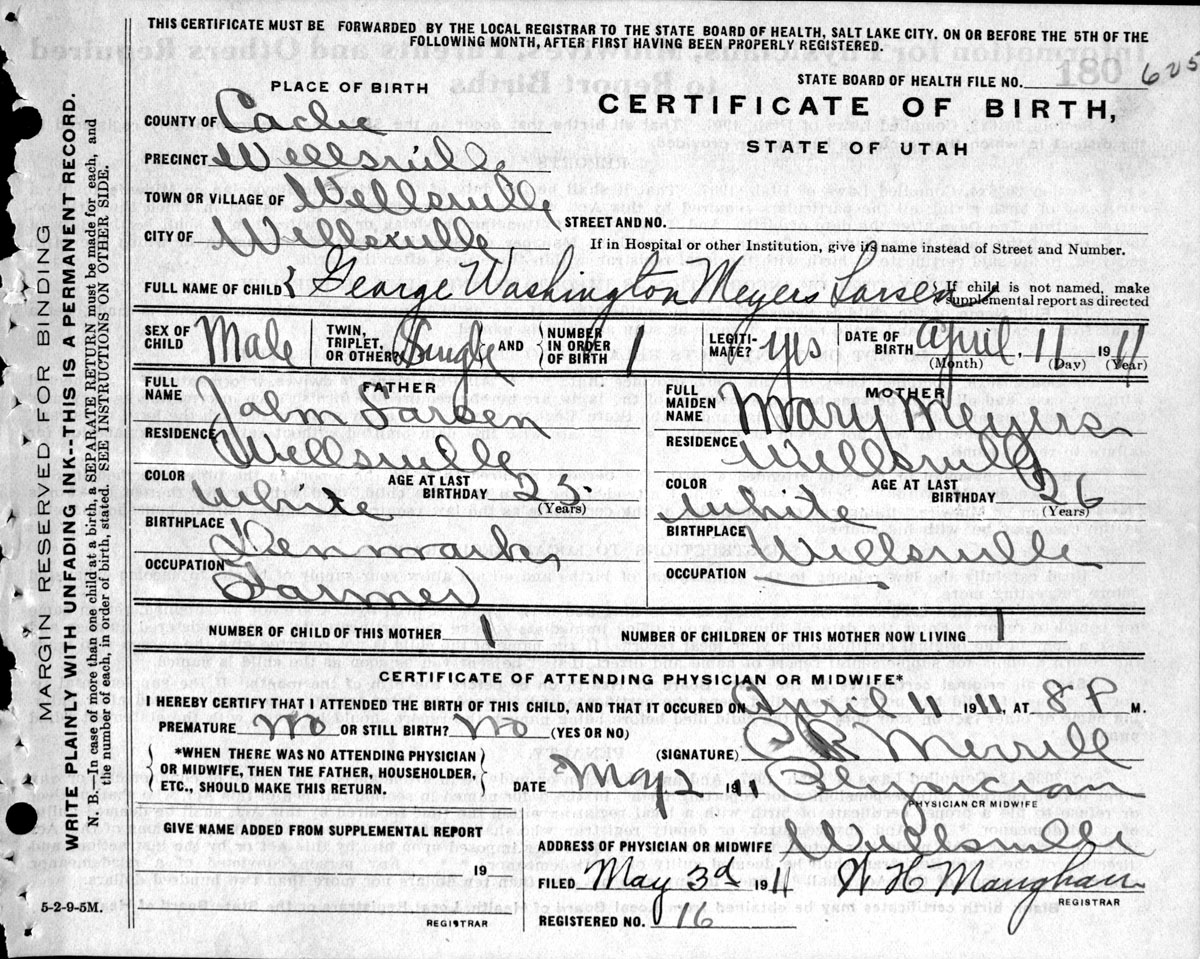 THIS CERTIFICATE MUST BE FORWARDED BY THE LOCAL REGISTRAR TO THE STATE BOARD OF HEALTH, SALT LAKE CITY. ON OR BEFORE THE 5TH OF THE
FOLLOWING MONTH, AFTER FIRST HAVING BEEN PROPERLY REGISTERED.
STATE BOARD OF HEALTH FILE NO. 180 625
PLACE OF BIRTH
CERTIFICATE OF BIRTH,
STATE OF UTAH
COUNTY OF Cache
PRECINCT Wellsville
TOWN OR VILLAGE OF Wellsville
STREET AND NO.
CITY OF Wellsville
If in Hospital or other Institution, give its name instead of Street and Number.
FULL NAME OF CHILD George Washington Meyers Larsen
If child is not named, make
supplemental report as directed
SEX OF CHILD Male
TWIN, TRIPLET, OR OTHER? Single AND NUMBER IN ORDER OF BIRTH 1
LEGITIMATE? yes
DATE OF BIRTH April, 11 1911
(Month) (Day) (Year)
FATHER
FULL NAME Larsen
RESIDENCE Wellsville
COLOR White AGE AT LAST BIRTHDAY 25
(Years)
BIRTHPLACE Denmark,
OCCUPATION Farmer
MOTHER
FULL MAIDEN NAME Mary Meyers
RESIDENCE Wellsville
COLOR White AGE AT LAST BIRTHDAY 26
(Years)
BIRTHPLACE Wellsville
OCCUPATION
NUMBER OF CHILD OF THIS MOTHER 1 NUMBER OF CHILDREN OF THIS MOTHER NOW LIVING 1
CERTIFICATE OF ATTENDING PHYSICIAN OR MIDWIFE*
I HEREBY CERTIFY THAT I ATTENDED THE BIRTH OF THIS CHILD, AND THAT IT OCCURED ON April 11 1911, AT 8 P M.
PREMATURE No OR STILL BIRTH? No (YES OR NO)
*WHEN THERE WAS NO ATTENDING PHYSICIAN
OR MIDWIFE, THEN THE FATHER, HOUSEHOLDER,
ETC., SHOULD MAKE THIS RETURN.
(SIGNATURE) Merrill
DATE May 2 1911 Physician
PHYSICIAN OR MIDWIFE
GIVE NAME ADDED FROM SUPPLEMENTAL REPORT
19
REGISTRAR
ADDRESS OF PHYSICIAN OR MIDWIFE Wellsville
FILED May 3d 1911 W H Maughan
REGISTRAR
REGISTERED NO. 16
5-2-9-5M.
MARGIN RESERVED FOR BINDING
WRITE PLAINLY WITH UNFADING INK--THIS IS A PERMANENT RECORD.
N. B.—In case of more than one child at a birth, a SEPARATE RETURN must be made for each, and
the number of each, in order of birth, stated. SEE INSTRUCTIONS ON OTHER SIDE.